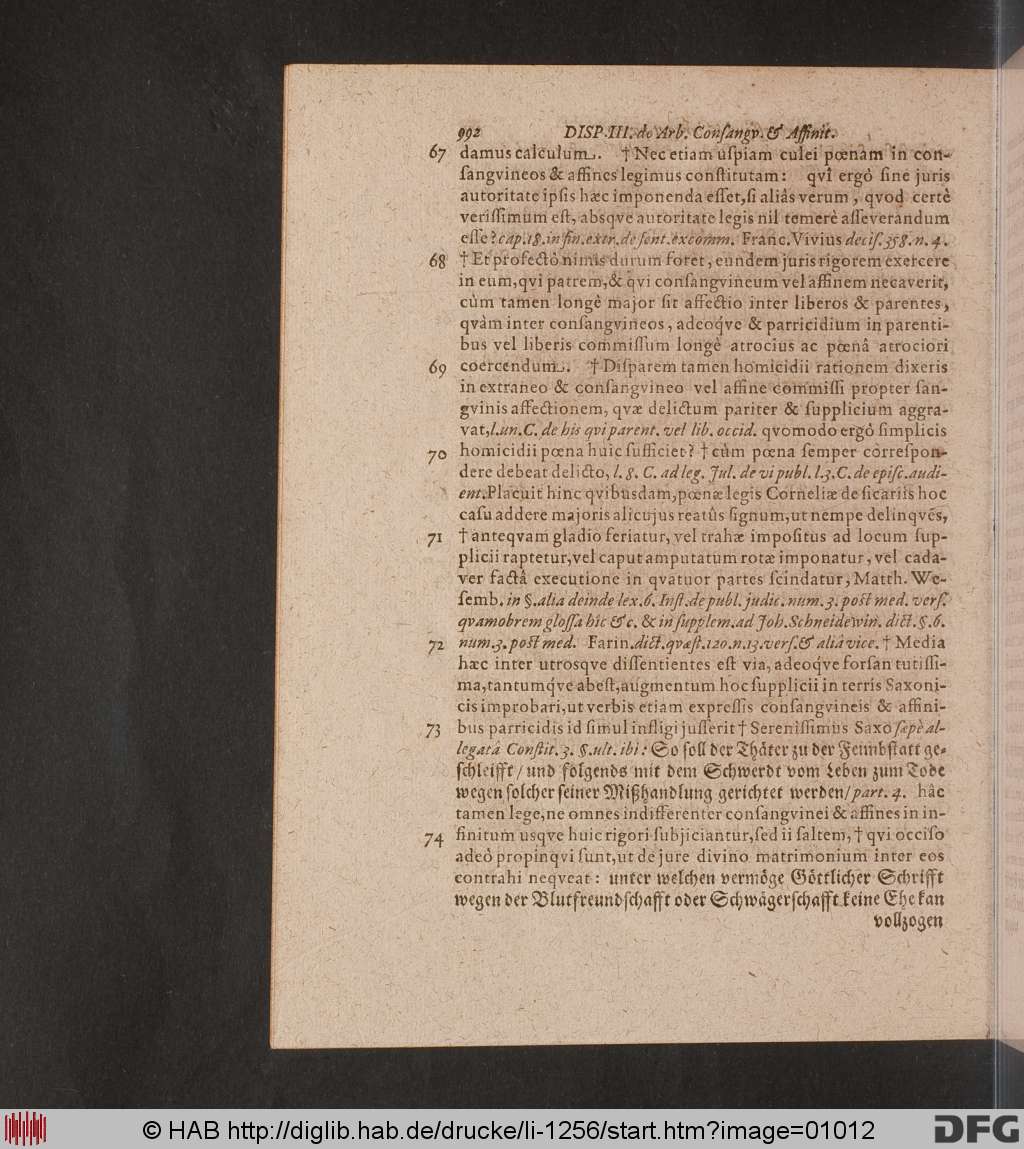 992 DISP.III. de Arb. Conſangv. & Affinit.
67 damus calculum. † Nec etiam uſpiam culei pœnam in con-
ſangvineos & affines legimus conſtitutam: qvî ergò ſine juris
autoritate ipſis hæc imponenda eſſet, ſi aliâs verum, qvod certè
veriſſimum eſt, absqve autoritate legis nil temerè aſſeverandum
eſſe? cap.18. in fin. extr. de ſent. excomm. Franc. Vivius deciſ. 358. n. 4.
68 † Et profectò nimis durum foret, eundem juris rigorem exercere
in eum, qvi patrem, & qvi conſangvineum vel affinem necaverit,
cùm tamen longè major ſit affectio inter liberos & parentes,
qvàm inter conſangvineos, adeoq́ve & parricidium in parenti-
bus vel liberis commiſſum longè atrocius ac pœnâ atrociori
69 coercendum. † Diſparem tamen homicidii rationem dixeris
in extraneo & conſangvineo vel affine commiſſi propter ſan-
gvinis affectionem, qvæ delictum pariter & ſupplicium aggra-
vat, l.un. C. de his qvi parent. vel lib. occid. qvomodo ergò ſimplicis
70 homicidii pœna huic ſufficiet? † cùm pœna ſemper correſpon-
dere debeat delicto, l. 8. C. ad leg. Jul. de vi publ. l.3. C. de epiſc. audi-
ent. Placuit hinc qvibusdam, pœnæ legis Corneliæ de ſicariis hoc
caſu addere majoris alicujus reatûs ſignum, ut nempe delinqvẽs,
71 † anteqvam gladio feriatur, vel trahæ impoſitus ad locum ſup-
plicii raptetur, vel caput amputatum rotæ imponatur, vel cada-
ver factâ executione in qvatuor partes ſcindatur, Matth. We-
ſemb. in §. alia deinde lex. 6. Inſt. de publ. judic. num. 3. poſt med. verſ.
qvamobrem gloſſa hîc &c. & in ſupplem. ad Joh. Schneidewin. dict. §. 6.
72 num. 3. poſt med. Farin. dict. qvæſt. 120. n. 13. verſ. & aliâ vice. † Media
hæc inter utrosqve diſſentientes eſt via, adeoq́ve forſan tutiſſi-
ma, tantumq́ve abeſt, augmentum hoc ſupplicii in terris Saxoni-
cis improbari, ut verbis etiam expreſſis conſangvineis & affini-
73 bus parricidis id ſimul infligi juſſerit † Sereniſſimus Saxo ſæpè al-
legatâ Conſtit. 3. §. ult. ibi: So ſoll der Thäter zu der Feimbſtatt ge-
ſchleifft / und folgends mit dem Schwerdt vom Leben zum Tode
wegen ſolcher ſeiner Mißhandlung gerichtet werden / part. 4. hâc
tamen lege, ne omnes indifferenter conſangvinei & affines in in-
74 finitum usqve huic rigori ſubjiciantur, ſed ii ſaltem, † qvi occiſo
adeò propinqvi ſunt, ut de jure divino matrimonium inter eos
contrahi neqveat: unter welchen vermöge Göttlicher Schrifft
wegen der Blutfreundſchafft oder Schwägerſchafft keine Ehe kan
vollzogen
© HAB http://diglib.hab.de/drucke/li-1256/start.htm?image=01012
DFG